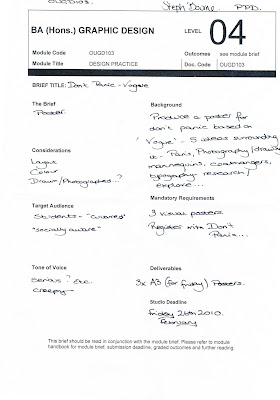 OUGD103.
Steph Bourne. P.P.D.
BA (Hons.) GRAPHIC DESIGN
LEVEL 04
Module Code OUGD103 Outcomes see module brief
Module Title DESIGN PRACTICE Doc. Code OUGD103
BRIEF TITLE: Don't Panic - Vogue
The Brief
Poster.
Considerations
Layout
Colour
Drawn/Photographed...?
Target Audience
Students -
"socially aware"
Tone of Voice
Serious? etc.
creepy
Background
Produce a poster for
don't panic based on
'Vogue' - 5 ideas surrounding
it - Paris, Photography/drawing
mannequins, coathangers,
typography. research/
explore...
Mandatory Requirements
3 visual posters
Register with Don't
Panic...
Deliverables
3x A3 (for fussy) Posters.
Studio Deadline
Friday 26th 2010.
February
This brief should be read in conjunction with the module brief. Please refer to module
handbook for module brief, submission deadline, graded outcomes and further reading.